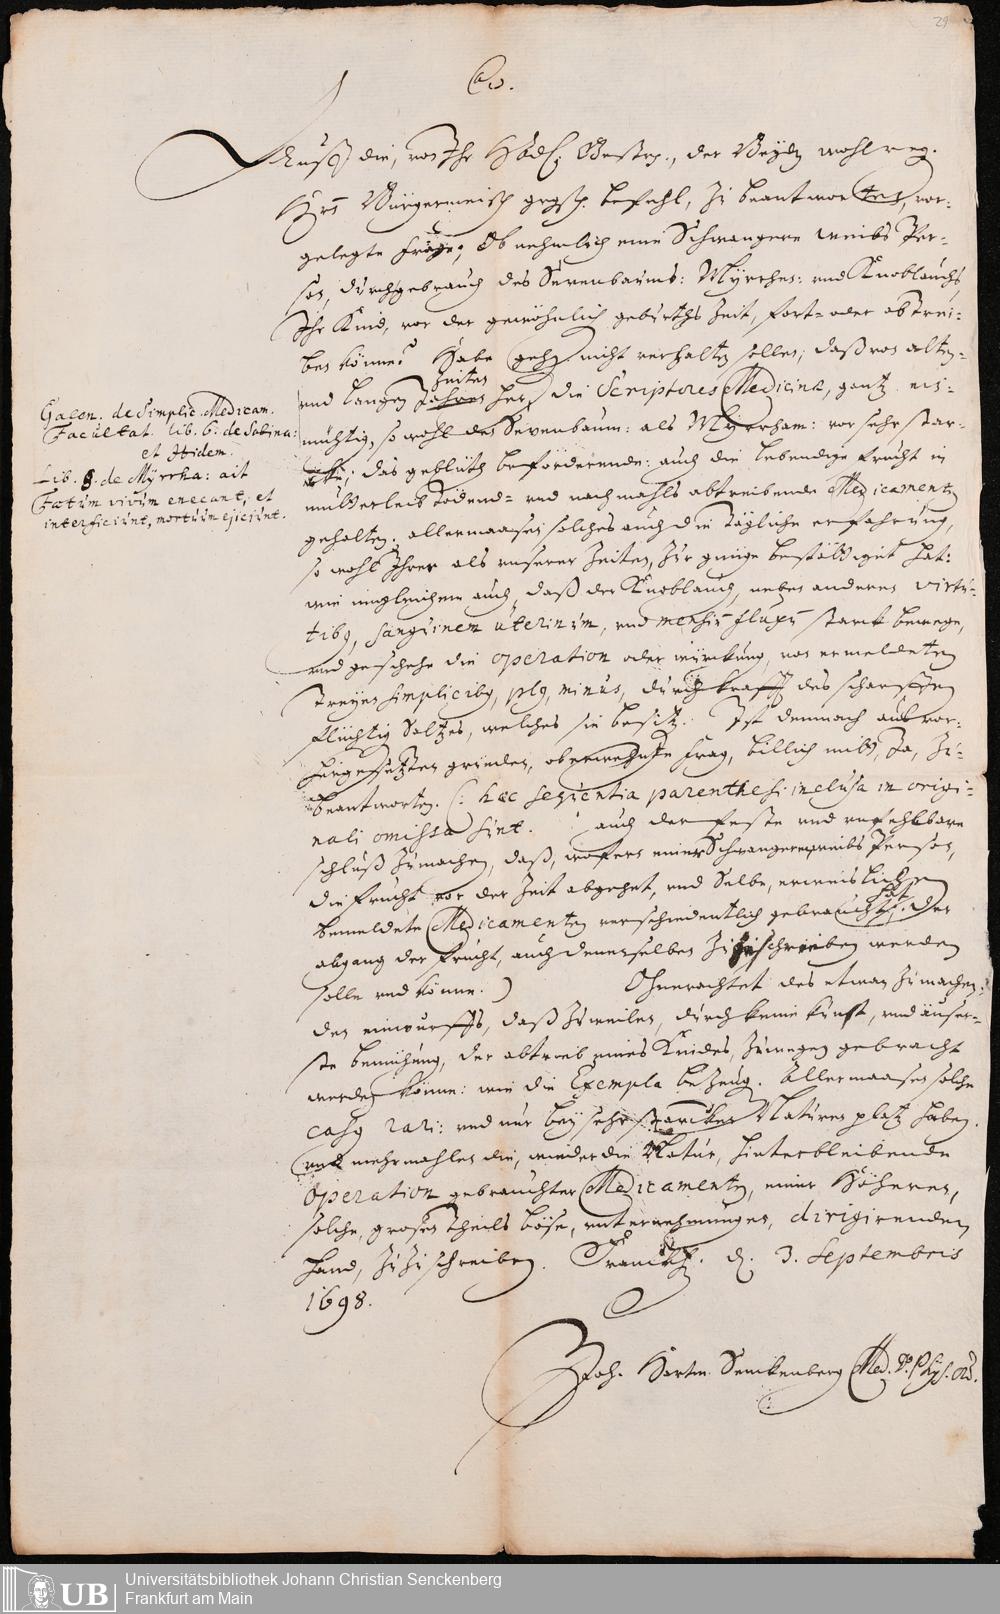 29
Auff die, von Ihr HochEdl. Gestr., der Beyden wohlreg.
Hrn Bürgermeistr grgstl. befehl, zu beantworten, vor-
gelegte frage; Ob nehmlich eine Schwangere weibs Per-
son, durch gebrauch des Sevenbaums: Myrrhen: und Knoblauchs,
Ihr Kind, vor der gewöhnlich geburths Zeit, fort- oder abtrei-
ben könne? Habe gehs. nicht verhalten sollen, daß von alten-
und langen Jahren Zeiten her, die Scriptores Medicinæ, gantz ein-
müthig, so wohl den Sevenbaum: als Myrrham: vor sehr star-
cke, das geblüth befördernde: auch die lebendige frucht in
mutterleib tödend- und nachmahls abtreibende Medicamenten
gehalten. allermaasen solches auch die tägliche erfahrung,
so wohl Ihrer als unserer Zeiten, zur gnüge bestättiget hat:
wie ingleichem auch, daß der Knoblauch, neben anderen virtu-
tibus, sanguinem uterinum, und mensium fluxum starck bewege,
und geschehe die operation oder würckung, von ermeldeten
dreyen simplicibus, plus, minus, durch krafft des scharffen
flüchtig Saltzes, welches sie besitz. Ist demnach aus vor-
hergesetzten gründen, oberwehnte frag, billich mitt, Ja, zu
beantworten. (: hæc sequentia parenthesi inclusa in origi-
nali omissa sunt. auch der feste und unfehlbare
schluß zumachen, daß, wofern einer Schwangeren weibs Person,
die frucht vor der Zeit abgehet, und Selbe, erweislichen
bemeldete Medicamenten verschiedentlich gebraucht hat, der
abgang der frucht, auch denenselben zugeschrieben werden
solle und könne. ) Ohnerachtet des etwan zumachen-
den einwurffs, daß zuweilen, durch keine kunst, und äuser-
ste bemühung, der abtrieb eines Kindes, zuwegen gebracht
werden könne: wie die Exempla bezeug. Allermaasen solche
casus rari: und nur bey sehr starcken Naturen platz haben.
und mehrmahlen die, wieder die Natur, hinterbleibende
operation gebrauchter Medicamenten, einer Höheren,
solche, grosen theils böse, unternehmungen, dirigirenden
Hand, zuzuschreiben. Franckf. d. 3. Septembris
1698.
Joh. Hartm. Senckenberg Med. D. Phys. Ord.
Galen. de Simplic. Medicam.
Facultat. lib. 6. de Sabina:
et Ibidem.
Lib. 8. de Myrrha: ait
Fœtum vivum enecant, et
interficiunt, mortuum ejiciunt.
UB
Universitätsbibliothek Johann Christian Senckenberg
Frankfurt am Main